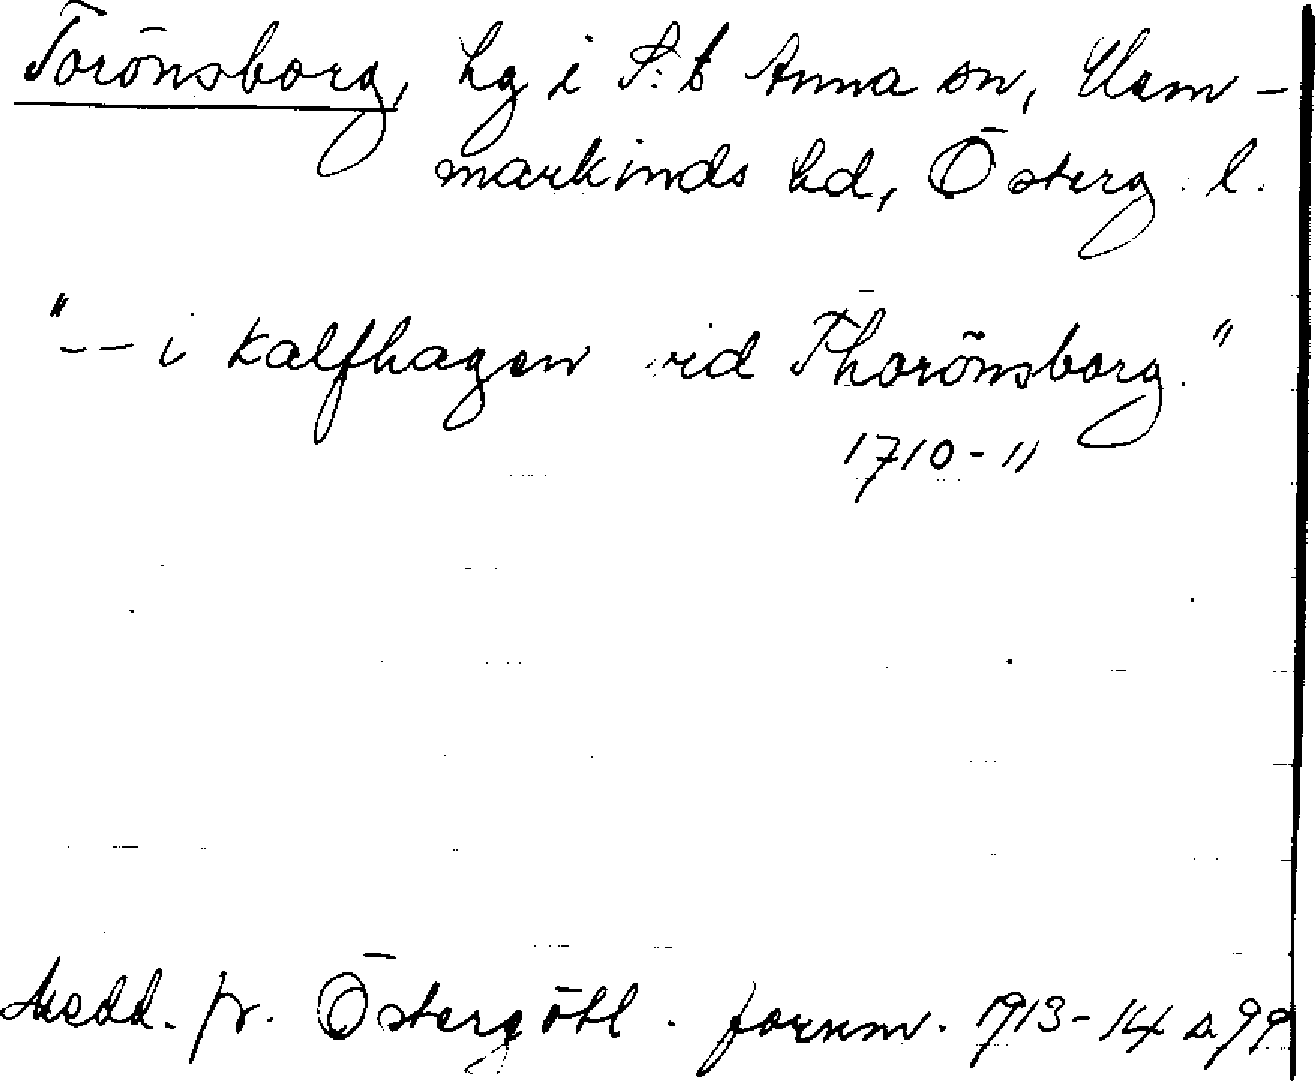 Torönsborg, hg i S:t Anna sn, Ham-
markinds hd, Österg. l.
"-- i kalfhagen vid Thorönsborg."
1710-11
Medd. fr. Östergötl. fornm. 1913-14 s. 99